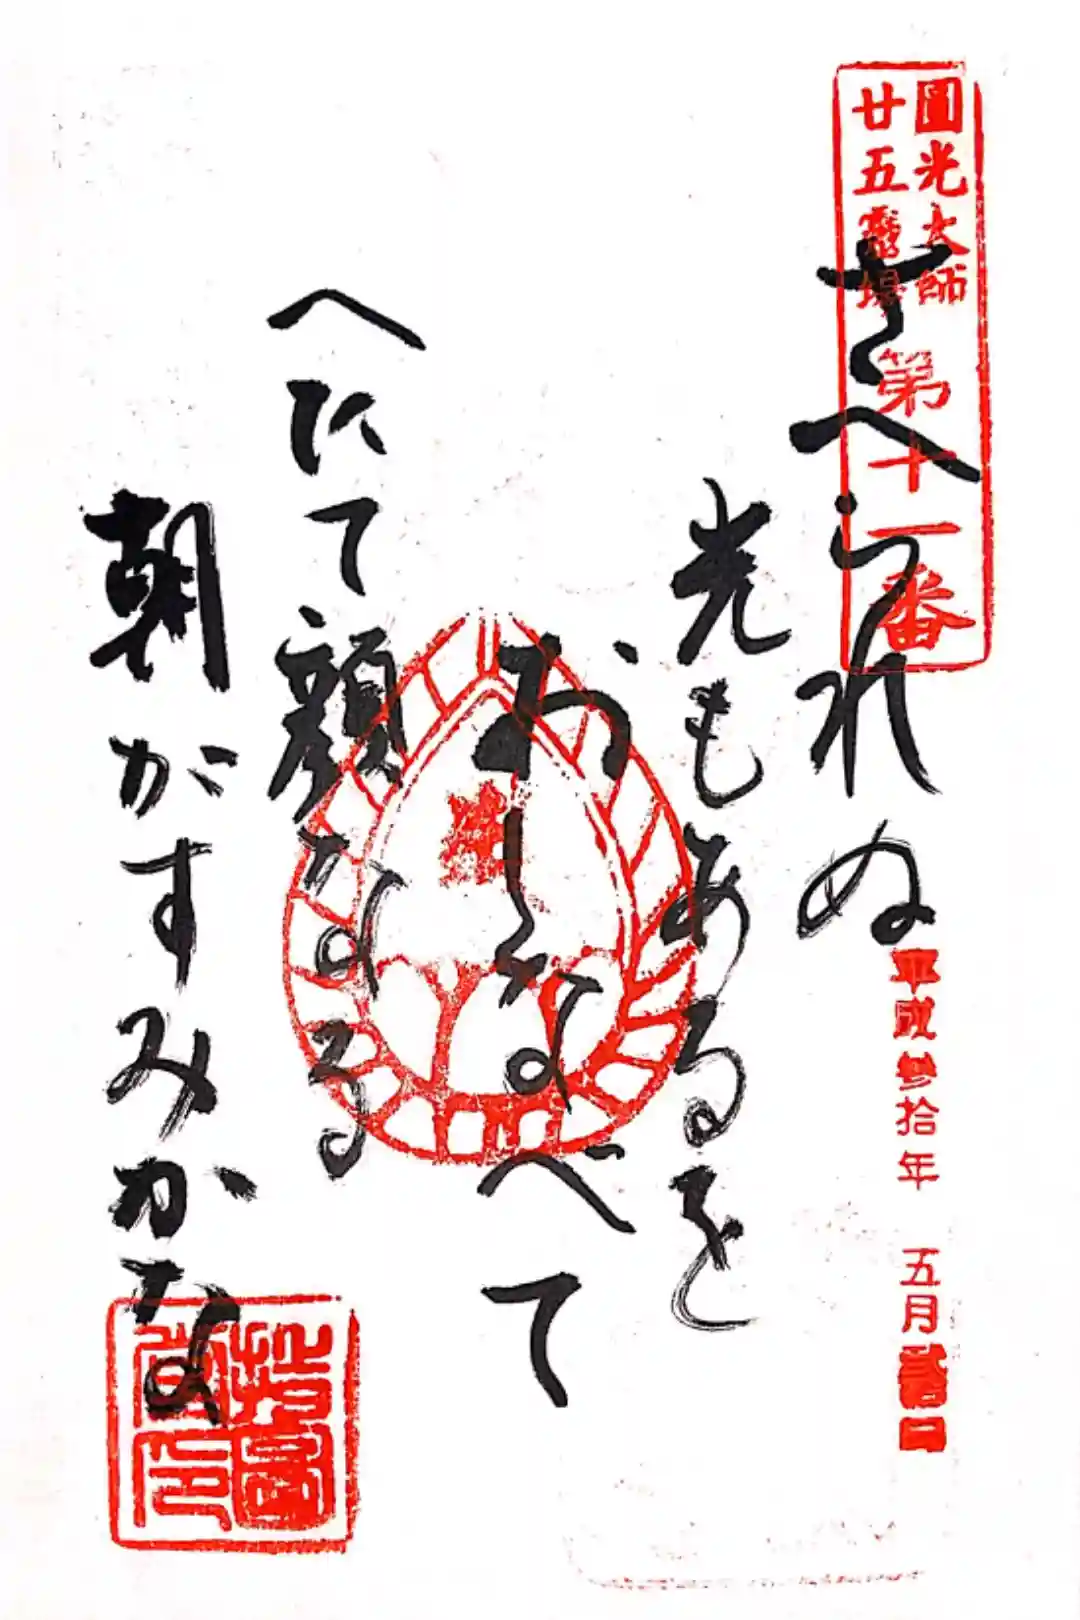 圓光大師
廿五靈場
第十一番
さへられぬ
光もあるを
おしなべて
へたて顔なる
朝がすみかな
平成参拾年
五月
指圖堂印